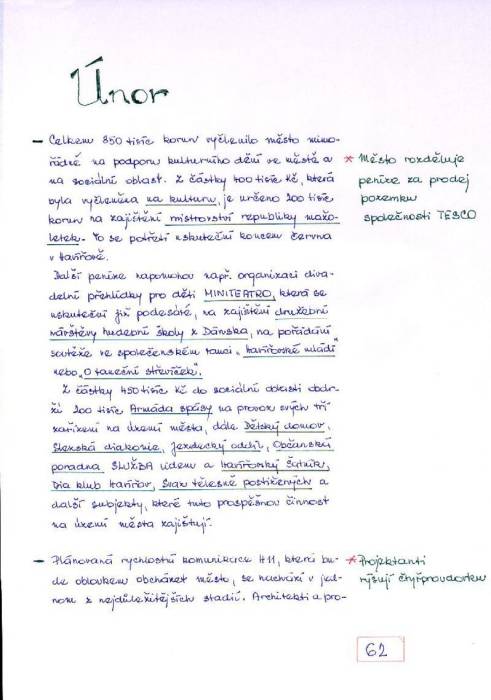 Únor
- Celkem 850 tisíc korun vyčlenilo město mimo-
řádně na podporu kulturního dění ve městě a
na sociální oblast. Z částky 400 tisíc Kč, která
byla vyčleněna na kulturu, je určeno 200 tisíc
korun na zajištění mistrovství republiky mažo-
retek. To se potřetí uskuteční koncem června
v Havířově.
Další peníze napomohou např. organizaci diva-
delní přehlídky pro děti MINITEATRO, která se
uskuteční již podesáté, na zajištění družební
návštěvy hudební školy z Dánska, na pořádání
soutěže ve společenském tanci "Havířovské mládí"
nebo "O taneční střevíček".
Z částky 450 tisíc Kč do sociální oblasti obdr-
ží 200 tisíc Armáda spásy na provoz svých tří
zařízení na území města, dále Dětský domov,
Slezská diakonie, Jezdecký oddíl, Občanská
poradna SLUŽBA lidem a Havířovský Šatník,
Dia klub Havířov, Svaz tělesně postižených a
další subjekty, které tuto prospěšnou činnost
na území města zajištují.
* Město rozděluje
peníze za prodej
pozemku
společnosti TESCO
- Plánovaná rychlostní komunikace R11, která bu-
de obloukem obcházet město, se nachází v jed-
nom z nejdůležitějších stadií. Architekti a pro-
* Projektanti
rýsují čtyřproudovku
62